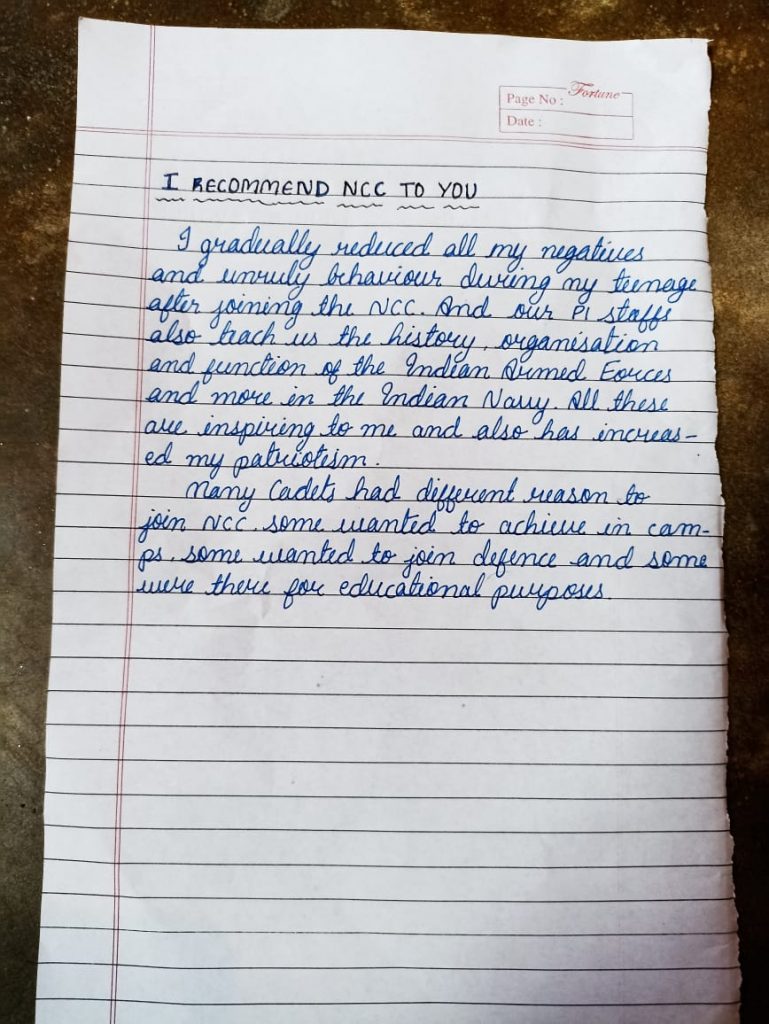 Fortune
Page No :
Date :
I RECOMMEND NCC TO YOU
I gradually reduced all my negatives
and unruly behaviour during my teenage
after joining the NCC. And our PI staffs
also teach us the history, organisation
and function of the Indian Armed Forces
and more in the Indian Navy. All these
are inspiring to me and also has increas-
ed my patriotism.
Many Cadets had different reason to
join NCC. some wanted to achieve in cam-
ps. some wanted to join defence and some
were there for educational purposes.